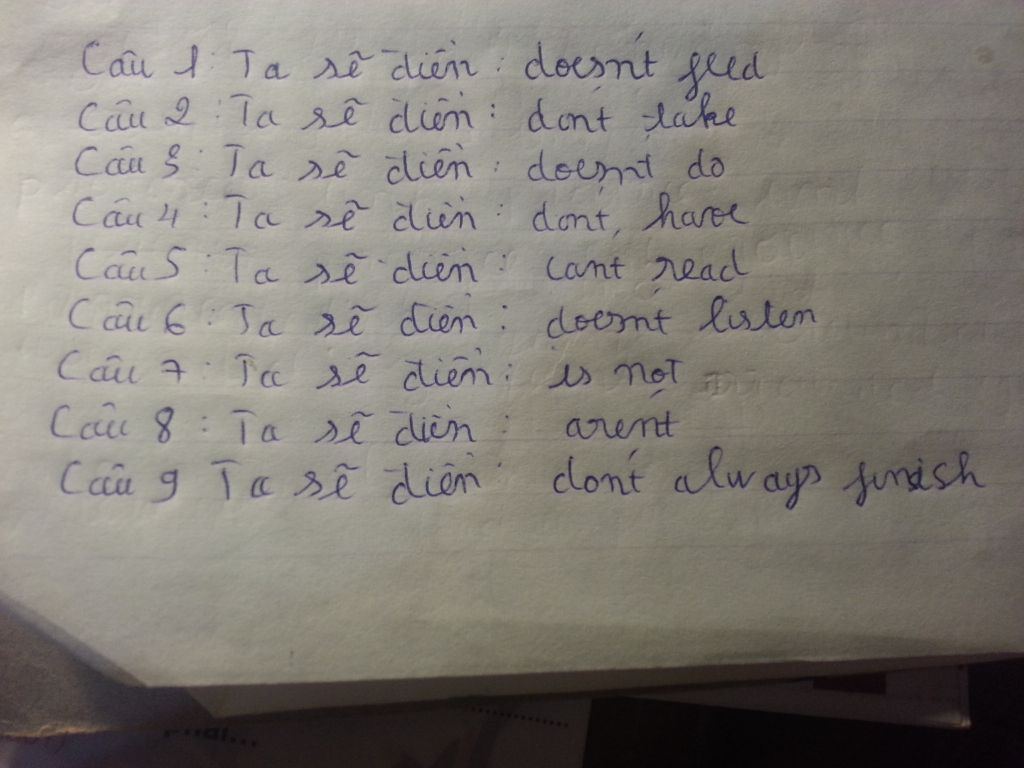 Câu 1: Ta sẽ điền: doesn't feed
Câu 2: Ta sẽ điền: don't take
Câu 3: Ta sẽ điền: doesn't do
Câu 4: Ta sẽ điền: don't, have
Câu 5: Ta sẽ điền: can't read
Câu 6: Ta sẽ điền: doesn't listen
Câu 7: Ta sẽ điền: is not
Câu 8: Ta sẽ điền: aren't
Câu 9 Ta sẽ điền: don't always finish